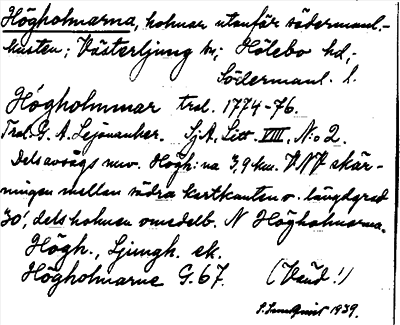 Högholmarna, holmar utanför södermanl.-
kusten; Västerljung sn; Hölebo hd,
Södermanl. l.
Högholmmar trol. 1774-76.
Trol. G. A. Lejonanker. Sj.A, Litt. VIII, N:o 2.
Dels avsågs nuv. Högh:na 3,9 km. VNV skär-
ningen mellan södra kartkanten o. längdgrad
30', dels holmen omedelb. N Högholmarna.
Högh., Ljungh. sk.
Högholmarne G. 67. (Vänd!)
1939.